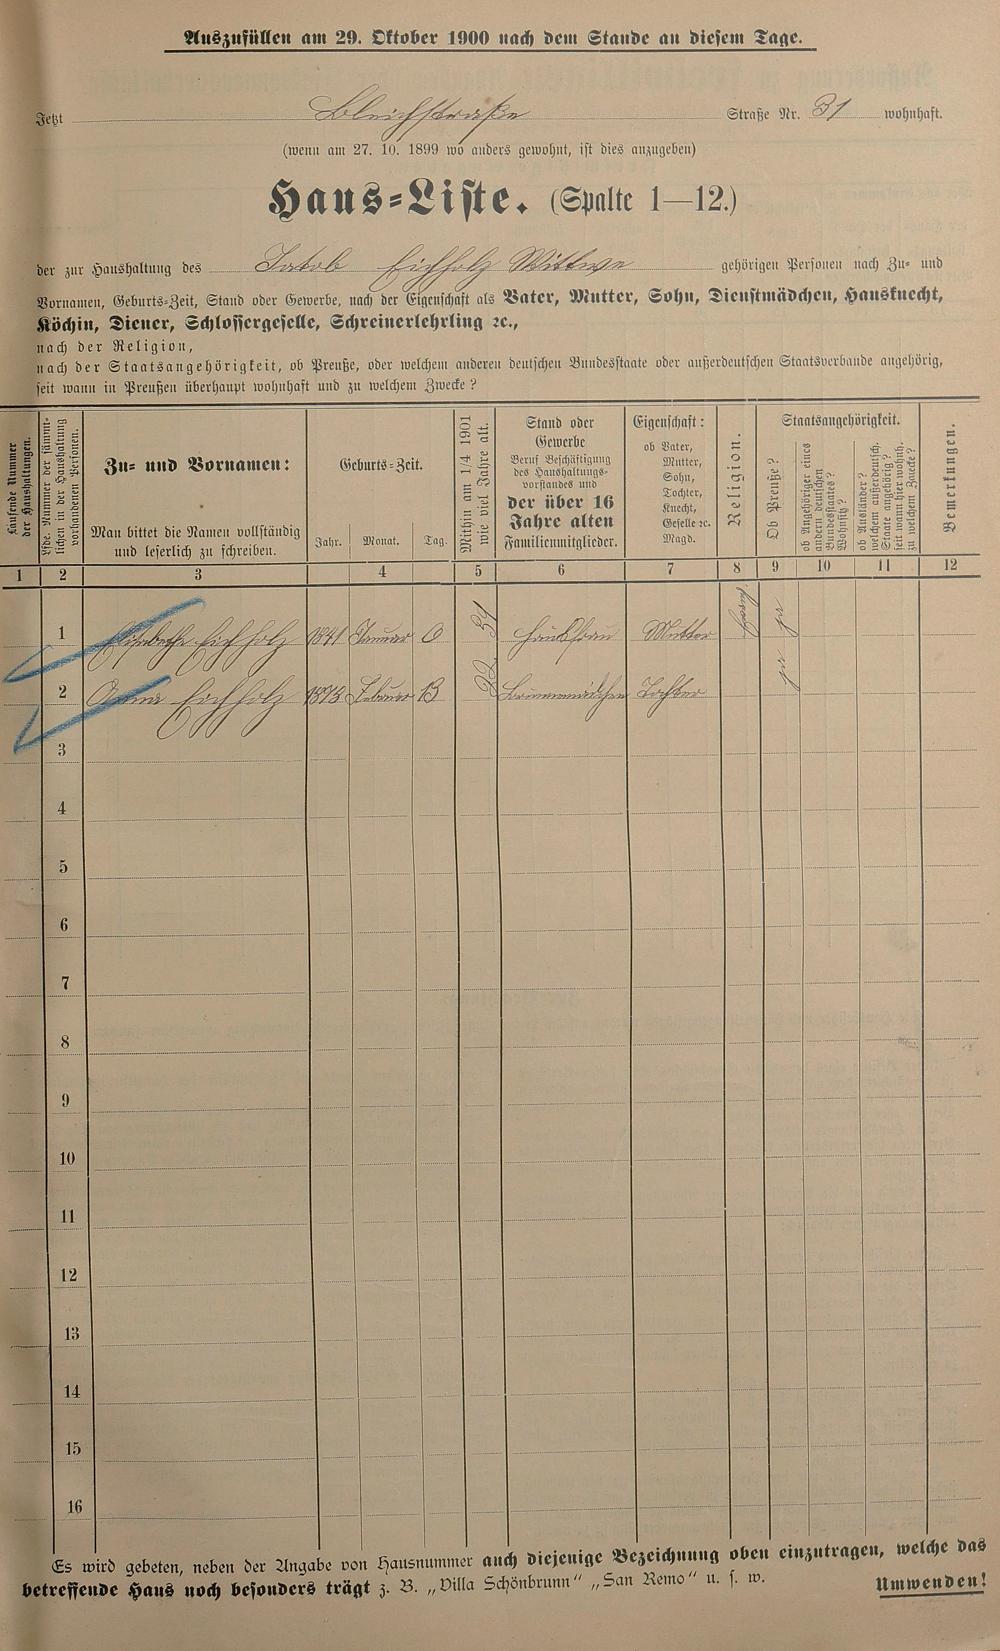 Auszufüllen am 29. Oktober 1900 nach dem Stande an diesem Tage.
Jetzt Bleichstraße Straße Nr. 31 wohnhaft.
(wenn am 27. 10. 1899 wo anders gewohnt, ist dies anzugeben)
Haus=Liste. (Spalte 1—12.)
der zur Haushaltung des Jakob Eichholz Wittwe gehörigen Personen nach Zu= und
Vornamen, Geburts=Zeit, Stand oder Gewerbe, nach der Eigenschaft als Vater, Mutter, Sohn, Dienstmädchen, Hausknecht,
Köchin, Diener, Schlossergeselle, Schreinerlehrling ꝛc.,
nach der Religion,
nach der Staatsangehörigkeit, ob Preuße, oder welchem anderen deutschen Bundesstaate oder außerdeutschen Staatsverbande angehörig,
seit wann in Preußen überhaupt wohnhaft und zu welchem Zwecke?
Laufende Nummer
der Haushaltungen.
Lfde. Nummer der sämmt=
lichen in der Haushaltung
vorhandenen Personen.
Zu= und Vornamen:
Man bittet die Namen vollständig
und leserlich zu schreiben.
Geburts=Zeit.
Jahr. Monat. Tag.
Mithin am 1/4 1901
wie viel Jahre alt.
Stand oder
Gewerbe
Beruf Beschäftigung
des Haushaltungs=
vorstandes und
der über 16
Jahre alten
Familienmitglieder.
Eigenschaft:
ob Vater,
Mutter,
Sohn,
Tochter,
Knecht,
Geselle ꝛc.
Magd.
Religion.
Staatsangehörigkeit.
Ob Preuße?
ob Angehöriger eines
andern deutschen
Bundesstaates?
Wohnsitz?
ob Ausländer?
welchem außerdeutsch.
Staate angehörig?
seit wann hier wohnh.
zu welchem Zwecke?
Bemerkungen.
1 2 3 4 5 6 7 8 9 10 11 12
1 Elisabethe Eichholz 1841 Januar 6 59 Hausfrau Mutter ja
2 Anna Eichholz 1873 Februar 13 Brunnenmädchen Tochter ja
3
4
5
6
7
8
9
10
11
12
13
14
15
16
Es wird gebeten, neben der Angabe von Hausnummer auch diejenige Bezeichnung oben einzutragen, welche das
betreffende Haus noch besonders trägt z. B. „Villa Schönbrunn" „San Remo" u. s. w.
Umwenden!